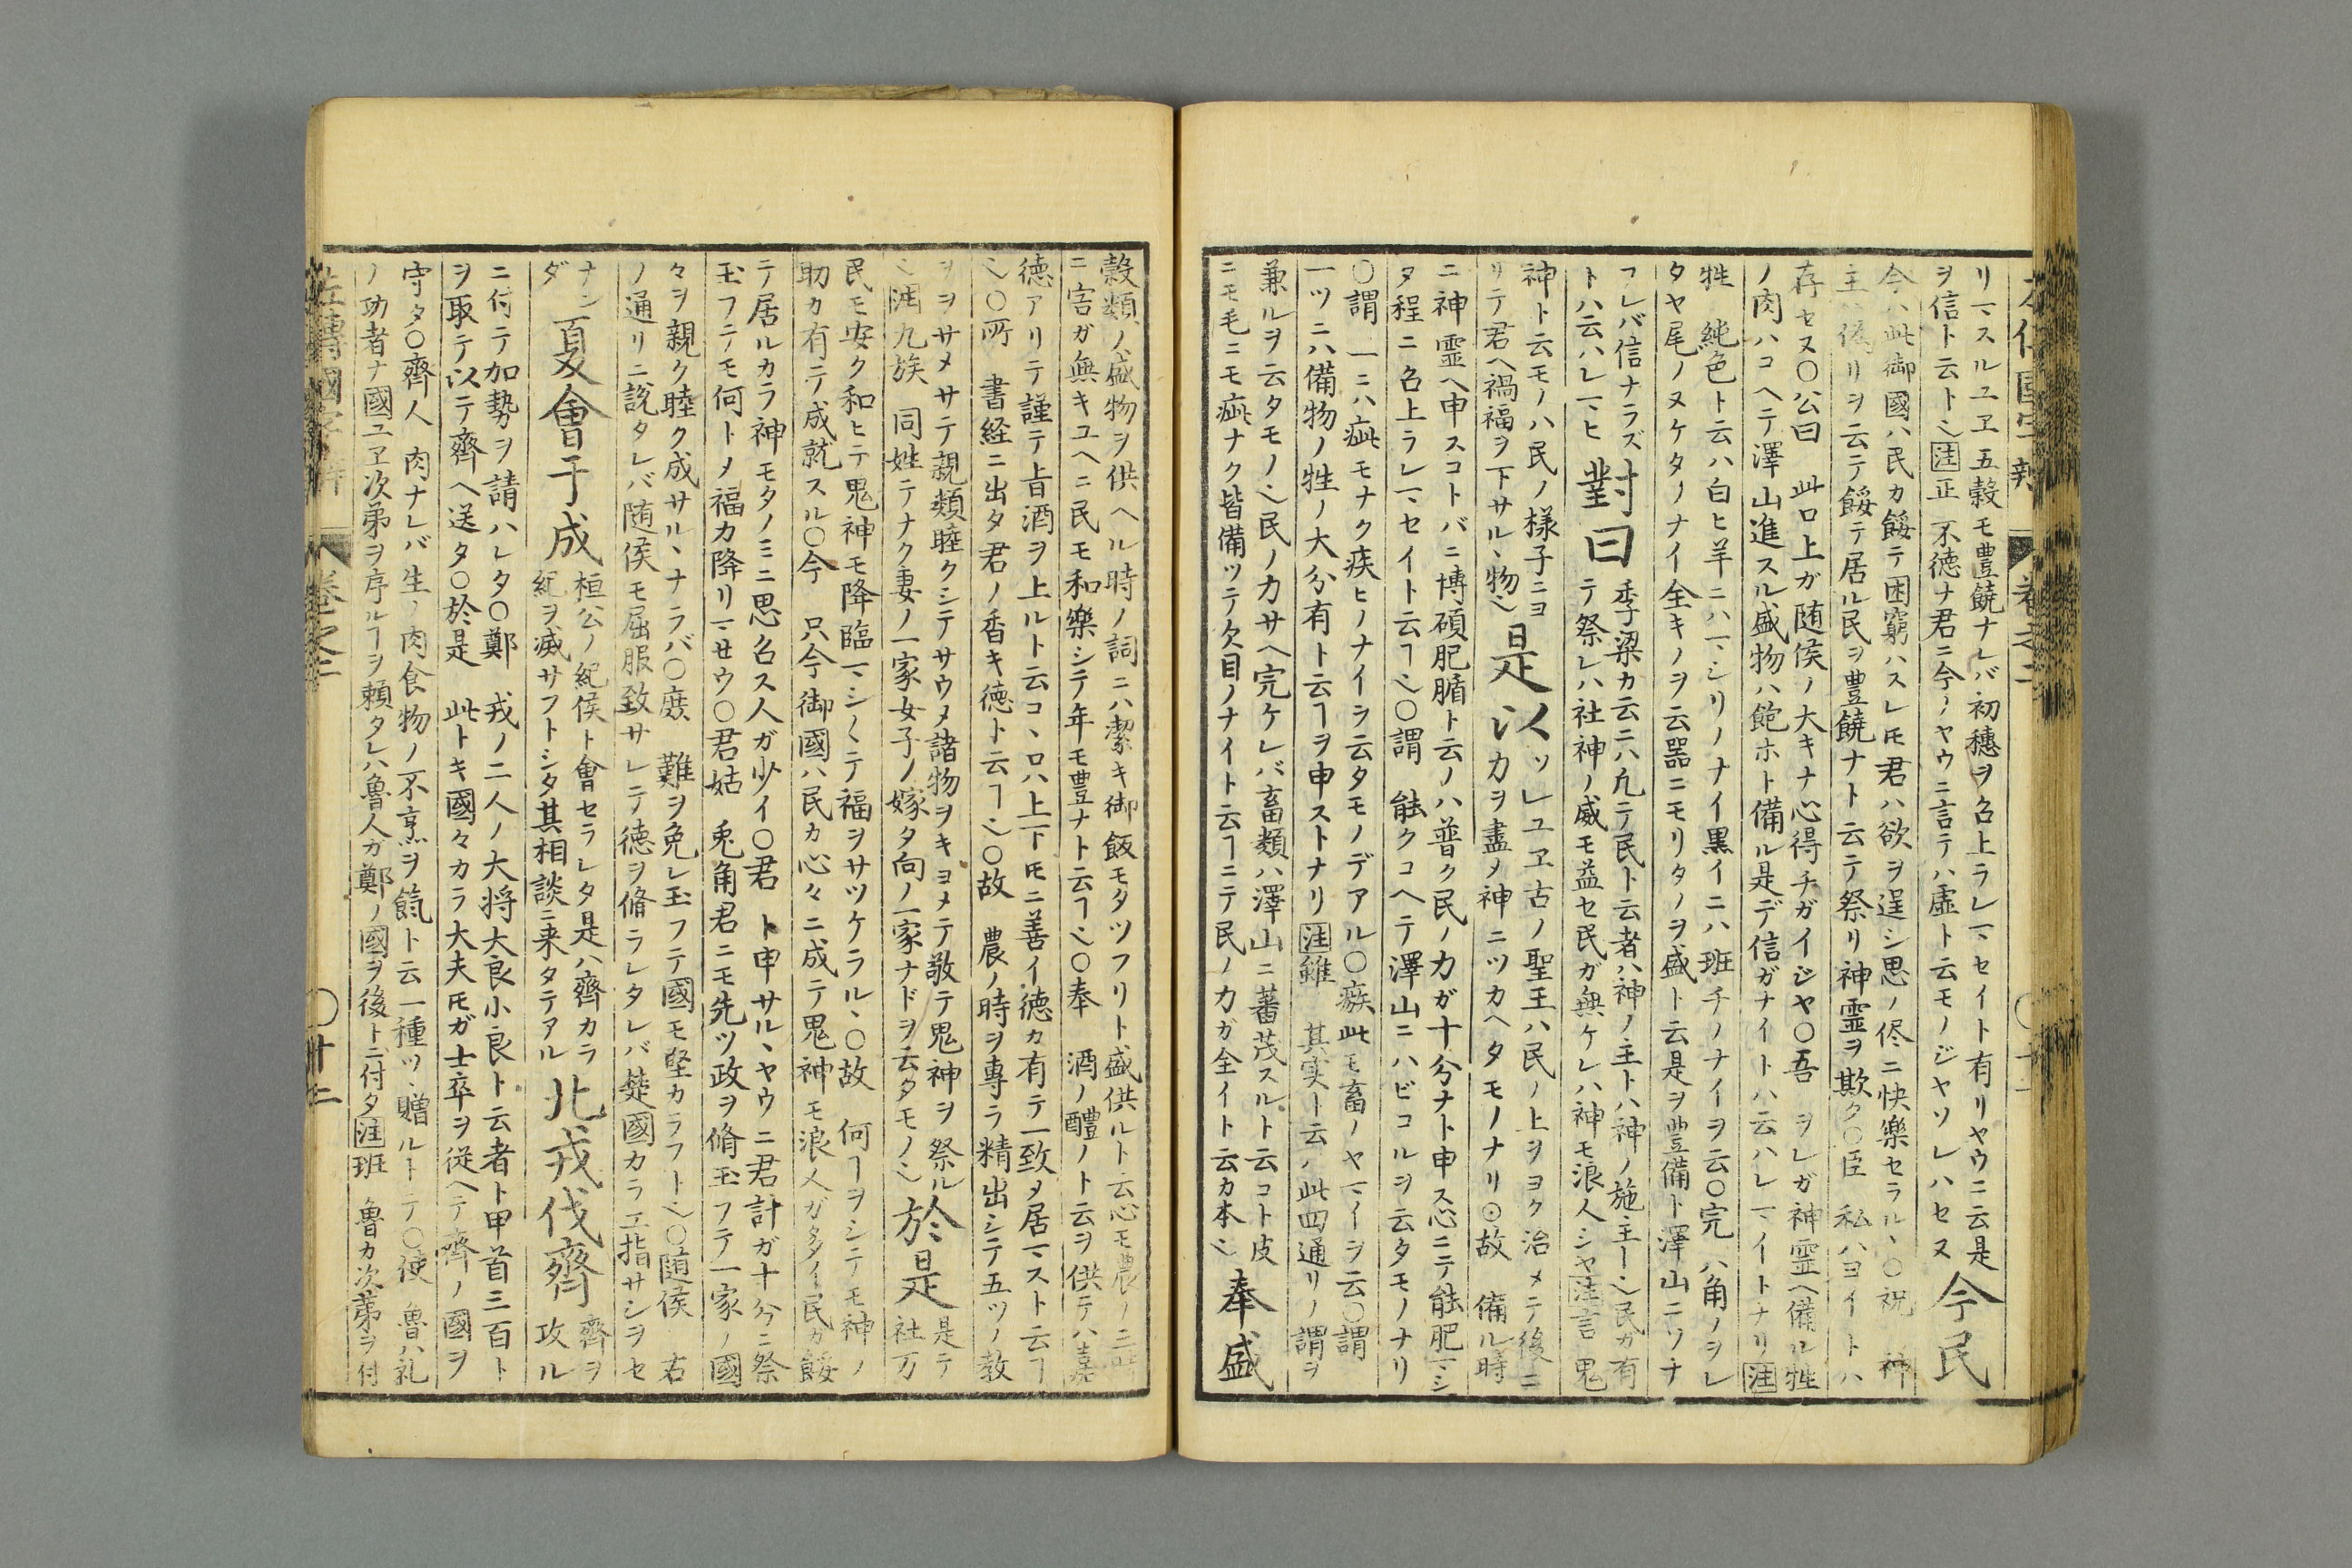 リマスルユヱ五穀モ豊饒ナレバ初穗ヲ召上ラレマセイト有リヤウニ云是
ヲ信ト云トヘ注正 不徳ナ君ニ今ノヤウニ言テハ虚ト云モノジヤソレハセヌ
今民
今ハ此御國ハ民カ餒テ困窮ハスレ𪜈君ハ欲ヲ逞シ思ノ侭ニ快樂セラルヽ○祝 神
主 偽リヲ云テ餒テ居ル民ヲ豊饒ナト云テ祭リ神霊ヲ欺ク○臣 私ハヨイトハ
存セヌ○公曰 此口上ガ随侯ノ大キナ心得チガイジヤ○吾 ヲレガ神霊ヘ備ル牲
ノ肉ハコヘテ澤山進スル盛物ハ飽ホト備ル是デ信ガナイトハ云ハレマイトナリ注
牲 純色ト云ハ白ヒ羊ニハマシリノナイ黒イニハ班チノナイヲ云○完 ハ角ノヲレ
タヤ尾ノヌケタノナイ全キノヲ云器ニモリタノヲ盛ト云是ヲ豊備ト澤山ニソナ
フレバ信ナラズ
トハ云ハレマヒ
對曰
季梁カ云ニハ凡テ民ト云者ハ神ノ主トハ神ノ施主ーヘ民ガ有
テ祭レハ社神ノ威モ益セ民ガ無ケレハ神モ浪人シヤ注言 鬼
神ト云モノハ民ノ様子ニヨ
リテ君ヘ禍福ヲ下サルヽ物ヘ
是以
ソレユヱ古ノ聖王ハ民ノ上ヲヨク治メテ後ニ
カヲ盡メ神ニツカヘタモノナリ⊙故 備ル時
ニ神霊ヘ申スコトバニ博碩肥腯ト云ノハ普ク民ノカガ十分ナト申ス心ニテ能肥マシ
タ程ニ召上ラレマセイト云ヿヘ○謂 能クコヘテ澤山ニハビコルヲ云タモノナリ
○謂 一ニハ疵モナク疾ヒノナイヲ云タモノデアル○瘯此モ畜ノヤマイヲ云○謂
一ツニハ備物ノ牲ノ大分有ト云ヿヲ申ストナリ注雖 其実ト云ノ此四通リノ謂ヲ
兼ルヲ云タモノヘ民ノカサヘ完ケレバ畜類ハ澤山ニ蕃茂スルト云コト皮
ニモ毛ニモ疵ナク皆備ツテ欠目ノナイト云ヿニテ民ノカガ全イト云カ本ヘ
奉盛
穀類ノ盛物ヲ供ヘル時ノ詞ニハ潔キ御飯モタツフリト盛供ルト云心モ農ノ三時
ニ害ガ無キユヘニ民モ和樂シテ年モ豊ナト云ヿヘ○奉 酒ノ醴ノト云ヲ供テハ嘉
徳アリテ謹テ旨酒ヲ上ルト云コヽロハ上下𪜈ニ善イ徳カ有テ一致メ居マスト云ヿ
ヘ○所 書経ニ出タ君ノ香キ徳ト云ヿヘ○故 農ノ時ヲ專ラ精出シテ五ツノ教
ヲヲサメサテ親類睦クシテサウメ諸物ヲキヨメテ敬テ鬼神ヲ祭ル
ヘ注九族 同姓テナク妻ノ一家女子ノ嫁タ向ノ一家ナドヲ云タモノヘ
於是
是テ
社万
民モ安ク和ヒテ鬼神モ降臨マシ〳〵テ福ヲサツケラルヽ○故 何ヿヲシテモ神ノ
助カ有テ成就スル○今 只今御國ハ民カ心々ニ成テ鬼神モ浪人ガタイ民ガ餒
テ居ルカラ神モタノミニ思召ス人ガ少イ○君 ト申サルヽヤウニ君計ガ十分ニ祭
玉フニテモ何トメ福カ降リマせウ○君姑 兎角君ニモ先ツ政ヲ脩玉フテ一家ノ國
々ヲ親ク睦ク成サルヽナラバ○庶 難ヲ免レ玉フテ國モ堅カラフトヘ○随侯 右
ノ通リニ説タレバ随侯モ屈服致サレテ徳ヲ脩ラレタレバ楚國カラ工指サシヲセ
ナンダ
夏會于成
桓公ノ紀侯ト會セラレタ是ハ齊カラ
紀ヲ滅サフトシタ其相談ニ来タテアル
北戎伐齊
齊ヲ
攻ル
ニ付テ加勢ヲ請ハレタ○鄭 戎ノ二人ノ大将大良小良ト云者ト甲首三百ト
ヲ取テ以テ齊ヘ送タ○於是 此トキ國々カラ大夫𪜈ガ士卒ヲ従ヘテ齊ノ國ヲ
守タ○齊人 肉ナレバ生ノ肉食物ノ不烹ヲ餼ト云一種ツヽ贈ルトテ○使 魯ハ礼
ノ功者ナ國ユヱ次第ヲ序ルヿヲ頼タレハ魯人ガ鄭ノ國ヲ後トニ付タ注班 魯カ次第ヲ付
左傳國字辨 卷之二 ○十二